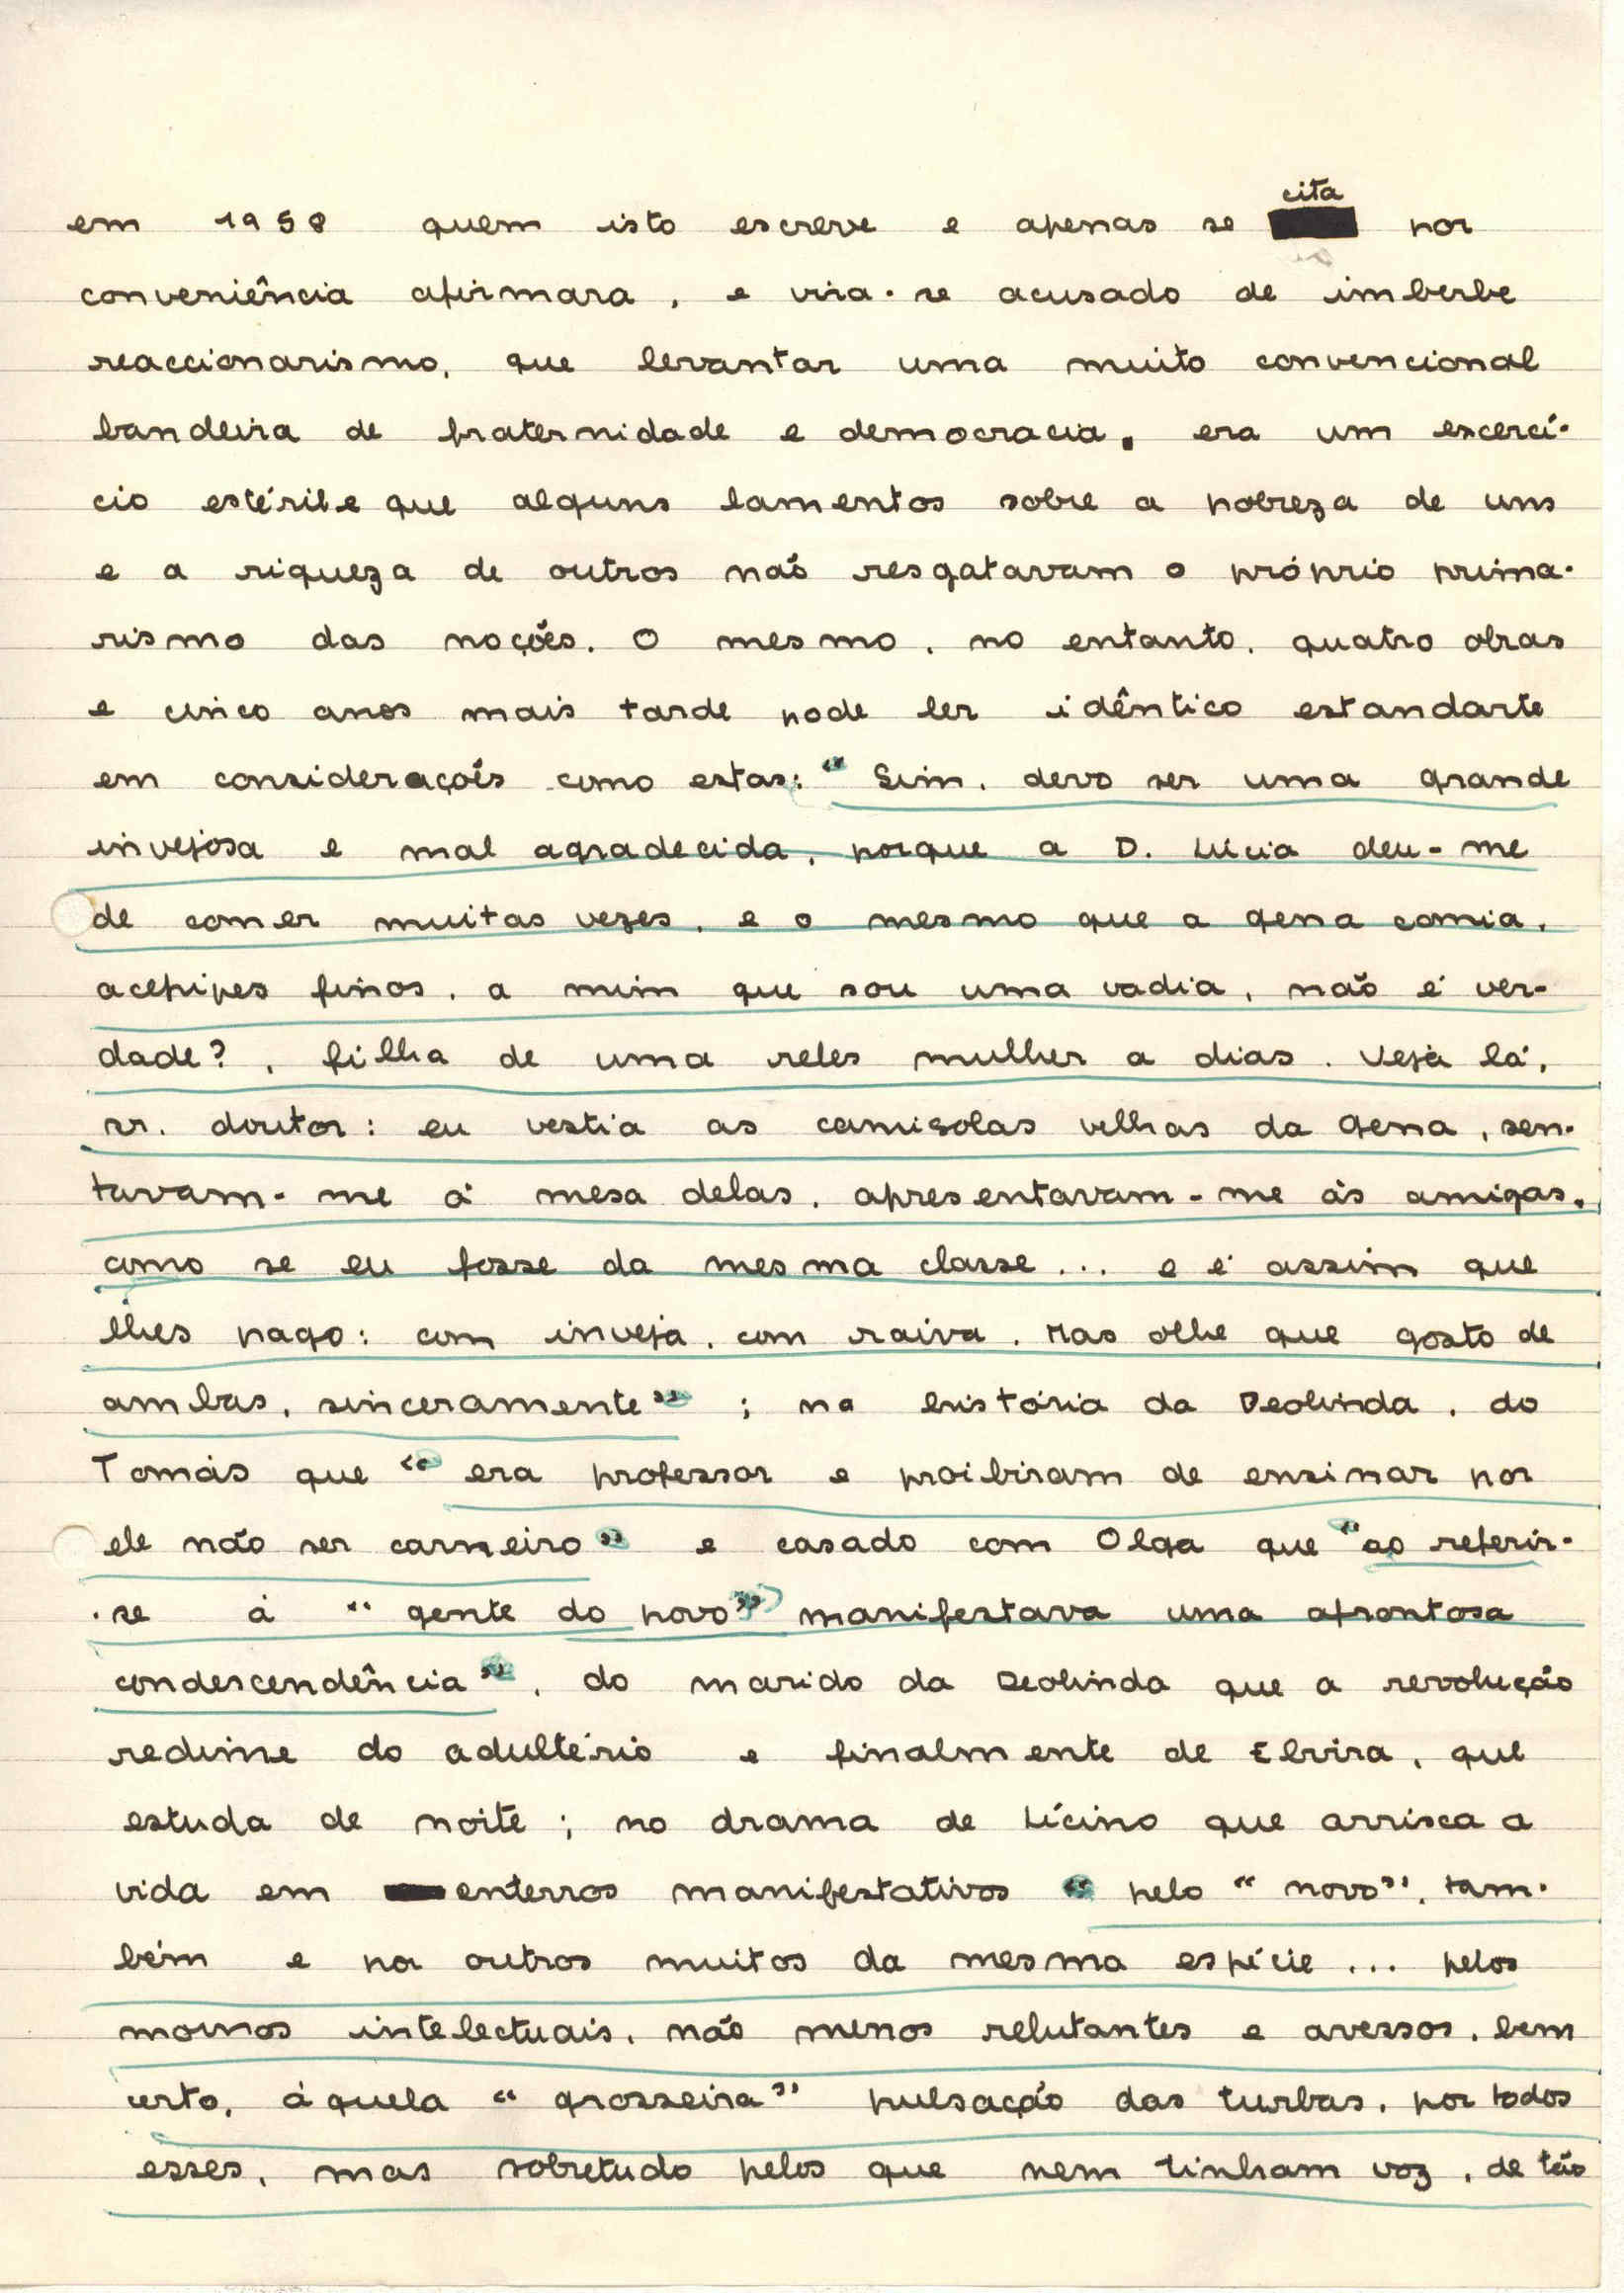 em 1958 quem isto escreve e apenas se cita por
conveniência afirmara, e vira-se acusado de imberbe
reaccionarismo, que levantar uma muito convencional
bandeira de fraternidade e democracia, era um excercí-
cio estéril e que alguns lamentos sobre a pobreza de uns
e a riqueza de outros não resgatavam o próprio prima-
rismo das noções. O mesmo, no entanto, quatro obras
e cinco anos mais tarde pode ler idêntico estandarte
em considerações como estas: “Sim, devo ser uma grande
invejosa e mal agradecida, porque a D. Lúcia deu-me
de comer muitas vezes, e o mesmo que a gena comia,
acepipes finos, a mim que sou uma vadia, não é ver-
dade?, filha de uma reles mulher a dias. Veja lá,
sr. doutor: eu vestia as camisolas velhas da Gena, sen-
tavam-me à mesa delas, apresentavam-me às amigas,
como se eu fosse da mesma classe... e é assim que
lhes pago: com inveja, com raiva. Mas olhe que gosto de
ambas, sinceramente”; na história da Deolinda, do
Tomás que “era professor e proibiram de ensinar por
ele não ser carneiro” e casado com Olga que “ao referir-
-se à “gente do povo” manifestava uma afrontosa
condescendência”, do marido da Deolinda que a revolução
redime do adultério e finalmente de Elvira, que
estuda de noite; no drama de Lícino que arrisca a
vida em enterros manifestativos “pelo “novo”, tam-
bém e por outros muitos da mesma espécie... pelos
mornos intelectuais, não menos relutantes e avessos, bem
certo, àquela “grosseira” pulsação das turbas, por todos
esses, mas sobretudo pelos que nem tinham voz, de tão